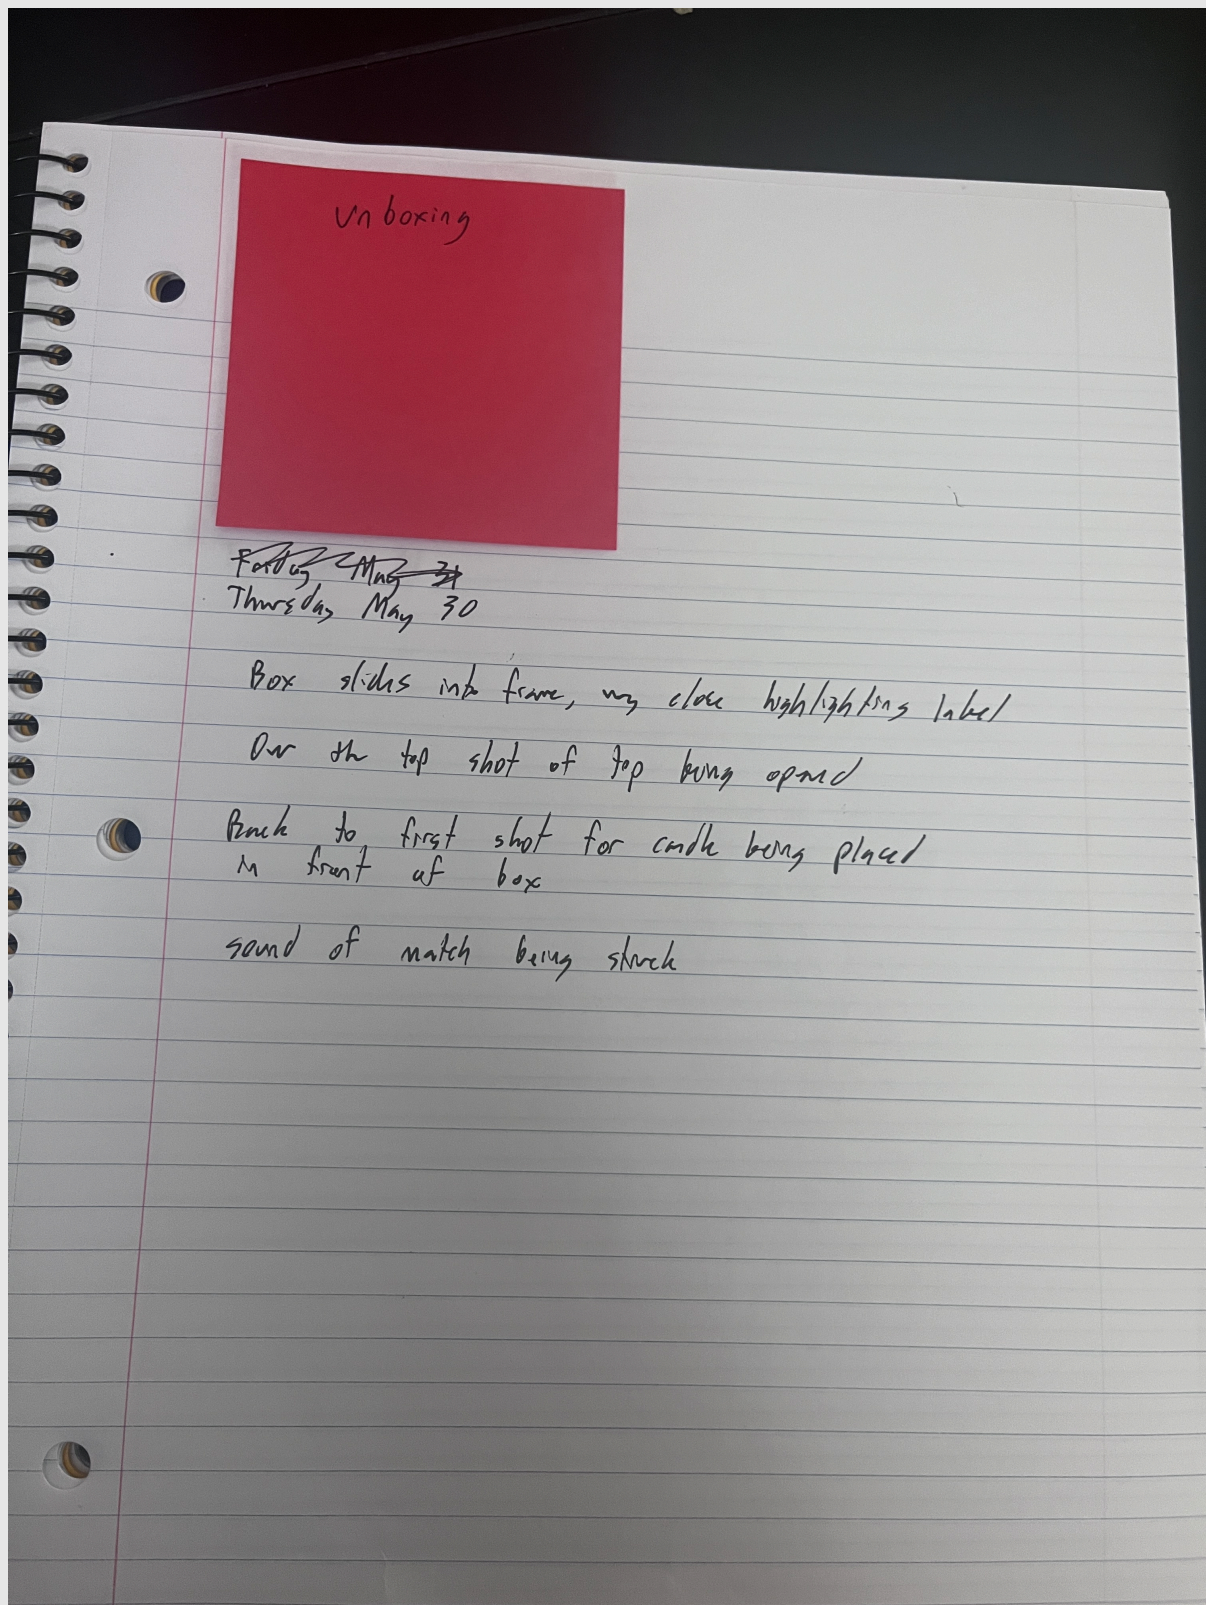 Unboxing
Friday May 31
Thursday May 30
Box slides into frame, very close highlighting label
Over the top shot of top being opened
Back to first shot for candle being placed
in front of box
sound of match being struck